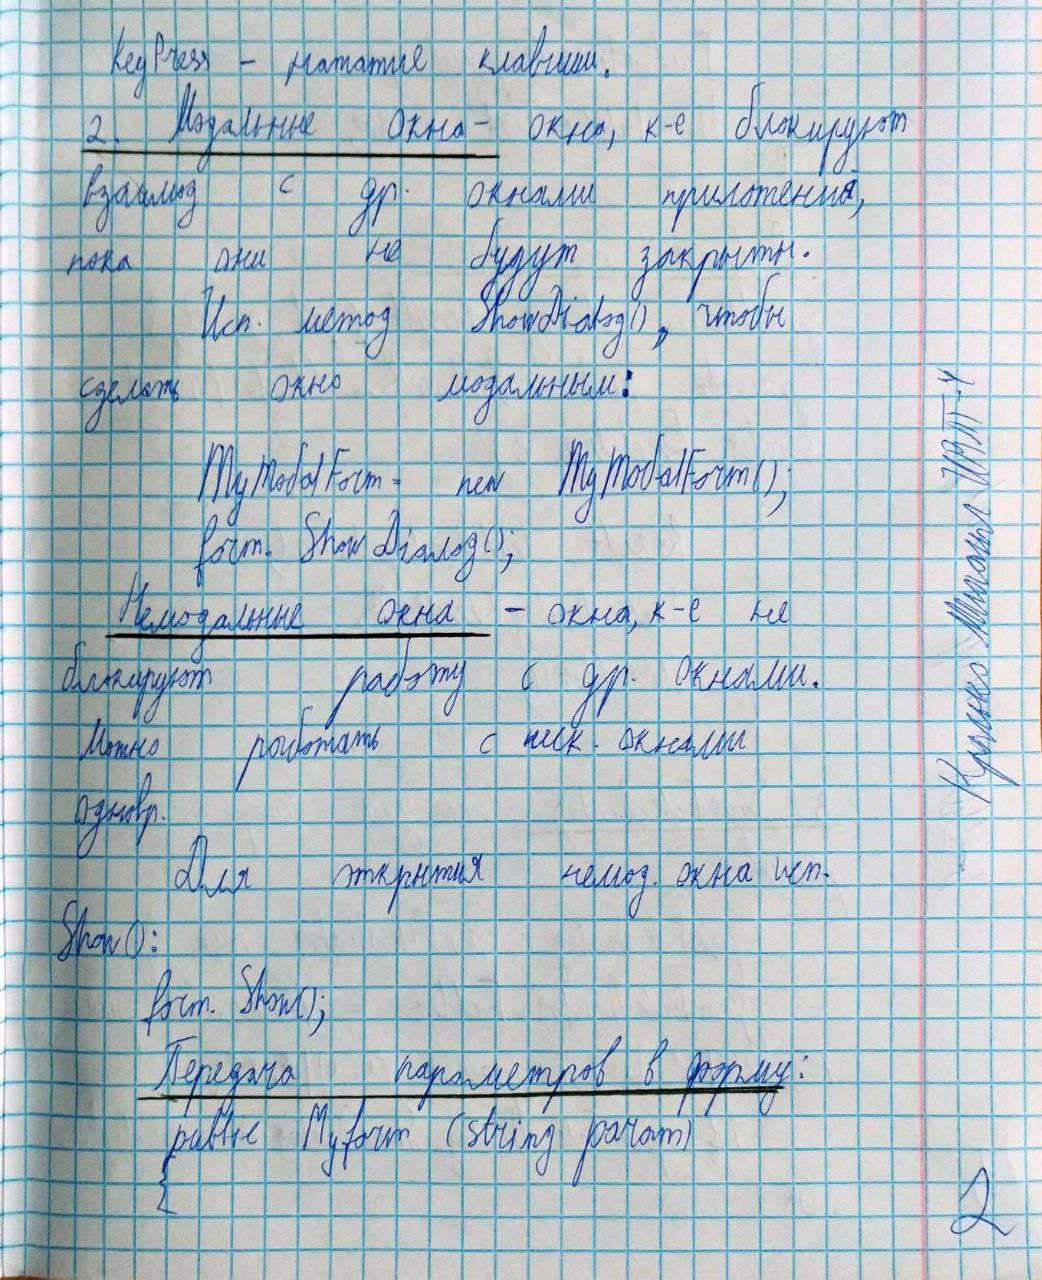 KeyPress – нажатие клавиши.
2. Модальные окна – окна, к-е блокируют
взаимод с др. окнами приложения,
пока они не будут закрыты.
Исп. метод ShowDialog(), чтобы
сделать окно модальным:
MyModalForm = new MyModalForm();
form. ShowDialog();
Немодальные окна – окна, к-е не
блокируют работу с др. окнами.
Можно работать с неск. окнами
одновр.
Для открытия немод. окна исп.
Show():
form. Show();
Передача параметров в форму:
Myform (string param)
{
Михаил
2